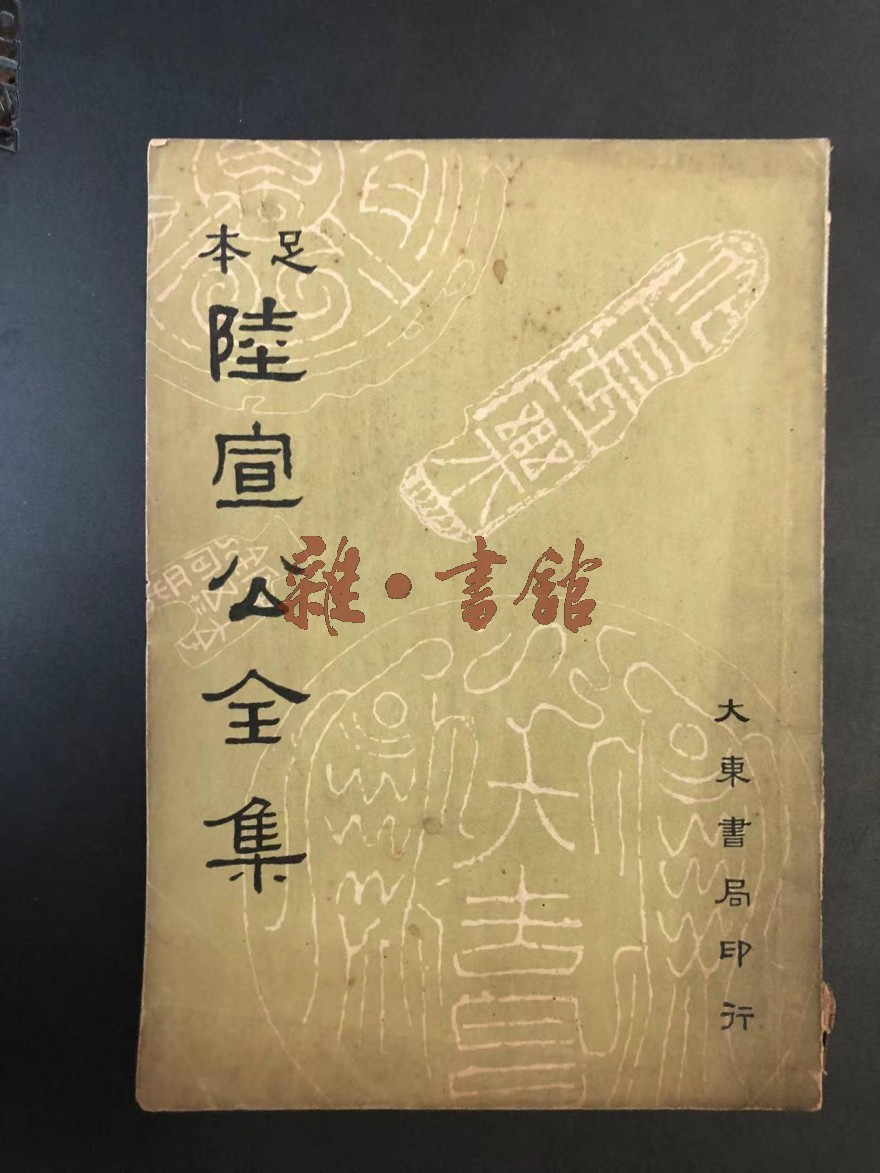 足本
陸宣公全集
大東書局印行
雜·書館
大吉